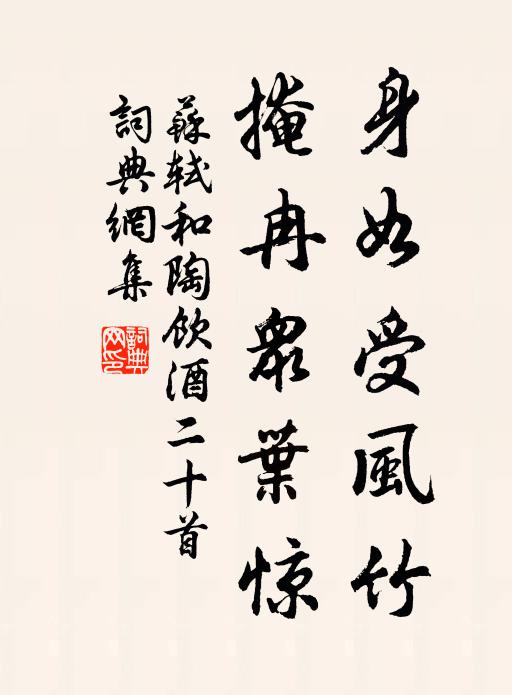 身如受風竹
掩冉衆葉惊
蘇軾和陶飲酒二十首
詞典網集
詞典
网印